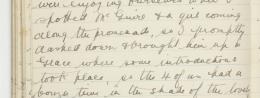 were enjoying ourselves when I
spotted Mc Guire & a girl coming
along the promenade, so I promptly
dashed down & brought him up to
Grace where some introductions
took place, so the 4 of us had a
bonza time in the shade of the lovely